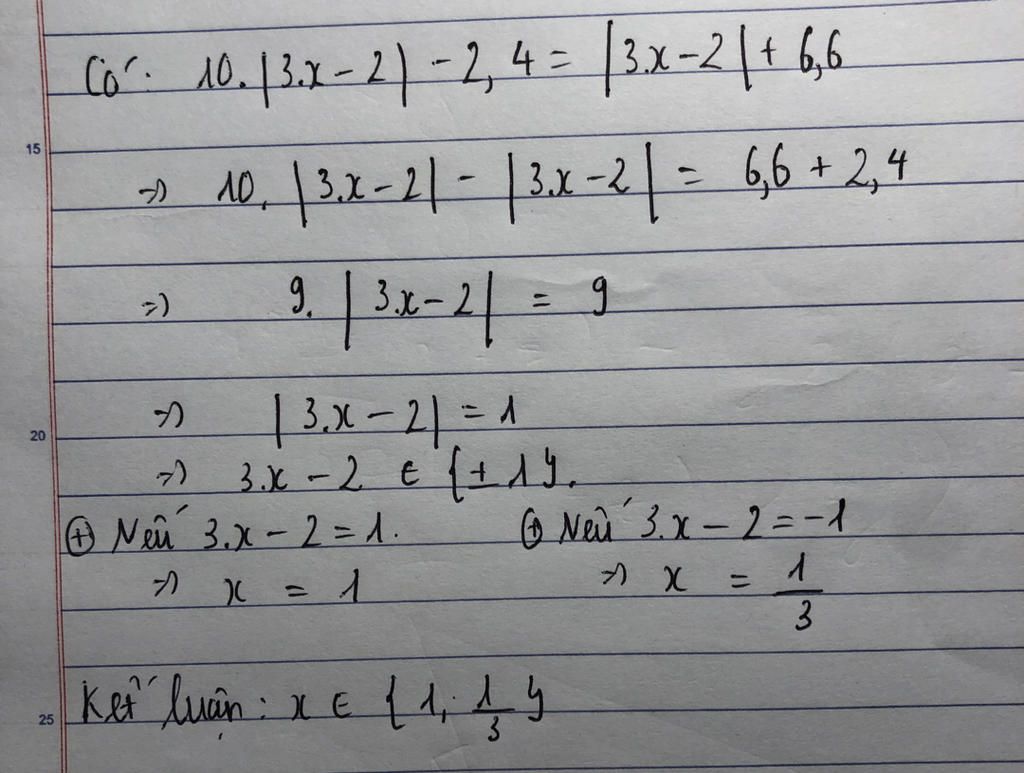 Có: 10.|3.x - 2| - 2,4 = |3.x - 2| + 6,6
15
=> 10. |3.x - 2| - |3.x - 2| = 6,6 + 2,4
=> 9. |3.x - 2| = 9
=> |3.x - 2| = 1
20
=> 3.x - 2 ∈ {± 1}.
⊕ Nếu 3.x - 2 = 1. ⊕ Nếu 3.x - 2 = -1
=> x = 1 => x = 1/3
Kết luận: x ∈ {1; 1/3}
25